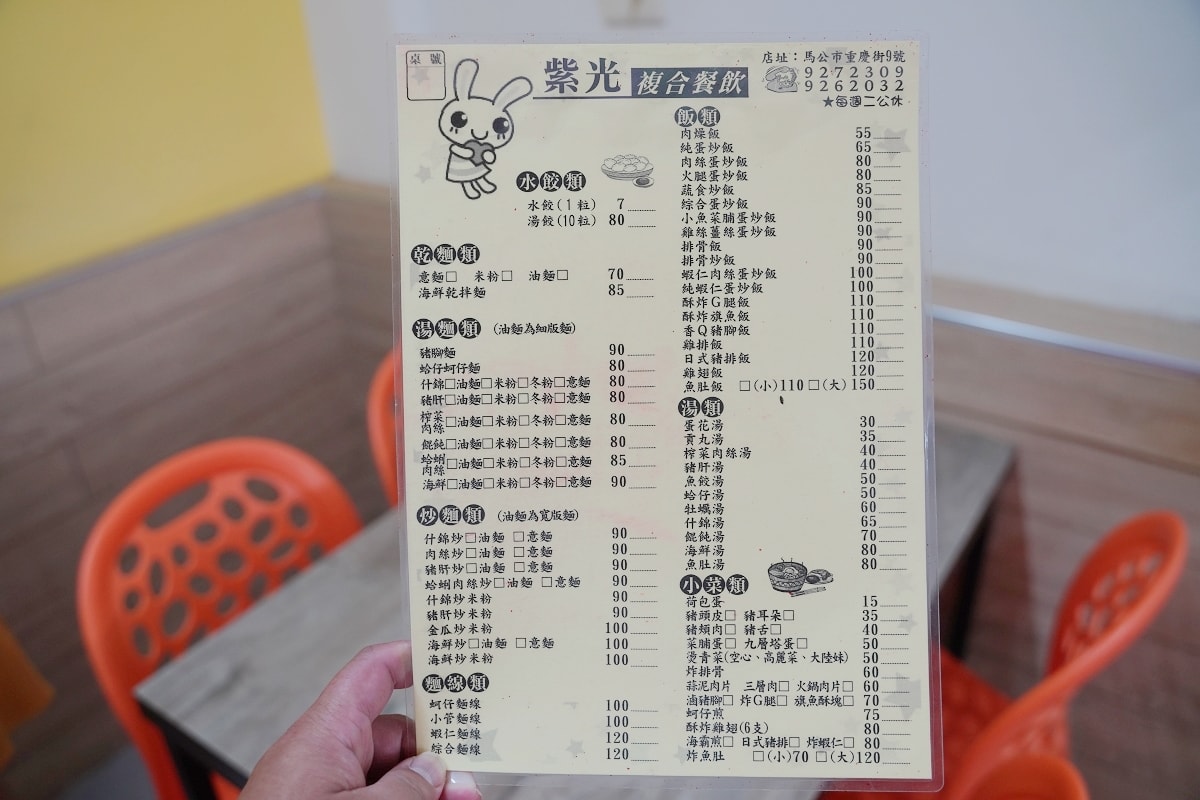 桌號
紫光 複合餐飲
店址：馬公市重慶街9號
9272309
9262032
★每週二公休
水餃類
水餃(1粒) 7
湯餃(10粒) 80
乾麵類
意麵□ 米粉□ 油麵□ 70
海鮮乾拌麵 85
湯麵類 (油麵為細版麵)
豬腳麵 90
蛤仔蚵仔麵 80
什錦□油麵□米粉□冬粉□意麵 80
豬肝□油麵□米粉□冬粉□意麵 80
榨菜肉絲□油麵□米粉□冬粉□意麵 80
餛飩□油麵□米粉□冬粉□意麵 80
蛤蜊肉絲□油麵□米粉□冬粉□意麵 85
海鮮□油麵□米粉□冬粉□意麵 90
炒麵類 (油麵為寬版麵)
什錦炒□油麵 □意麵 90
肉絲炒□油麵 □意麵 90
豬肝炒□油麵 □意麵 90
蛤蜊肉絲炒□油麵 □意麵 90
什錦炒米粉 90
豬肝炒米粉 90
金瓜炒米粉 100
海鮮炒□油麵 □意麵 100
海鮮炒米粉 100
麵線類
蚵仔麵線 100
小管麵線 100
蝦仁麵線 120
綜合麵線 120
飯類
肉燥飯 55
純蛋炒飯 65
肉絲蛋炒飯 80
火腿蛋炒飯 80
蔬食炒飯 85
綜合蛋炒飯 90
小魚菜脯蛋炒飯 90
雞絲薑絲蛋炒飯 90
排骨飯 90
排骨炒飯 90
蝦仁肉絲蛋炒飯 100
純蝦仁蛋炒飯 100
酥炸G腿飯 110
酥炸旗魚飯 110
香Q豬腳飯 110
雞排飯 110
日式豬排飯 120
雞翅飯 120
魚肚飯 □(小)110 □(大)150
湯類
蛋花湯 30
貢丸湯 35
榨菜肉絲湯 40
豬肝湯 40
魚餃湯 50
蛤仔湯 50
牡蠣湯 60
什錦湯 65
餛飩湯 70
海鮮湯 80
魚肚湯 80
小菜類
荷包蛋 15
豬頭皮□ 豬耳朵□ 35
豬頰肉□ 豬舌□ 40
菜脯蛋□ 九層塔蛋□ 50
燙青菜(空心、高麗菜、大陸妹) 50
炸排骨 60
蒜泥肉片 三層肉□ 火鍋肉片□ 60
滷豬腳□ 炸G腿□ 旗魚酥塊□ 70
蚵仔煎 75
酥炸雞翅(6支) 80
海霸煎□ 日式豬排□ 炸蝦仁□ 80
炸魚肚 □(小)70 □(大)120